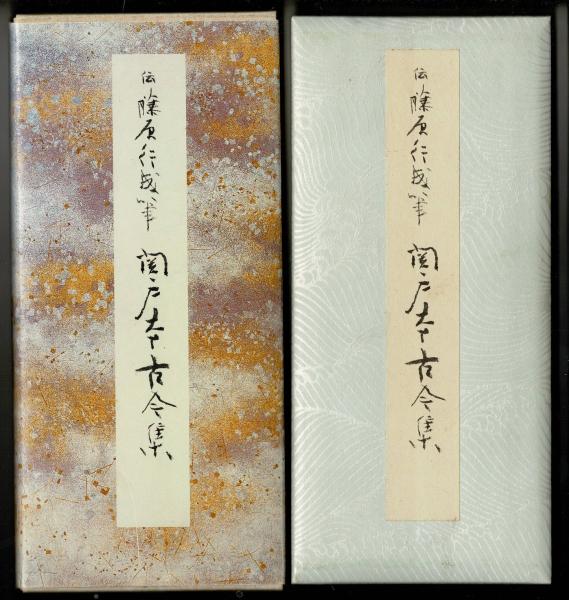 伝藤原行成筆 関戸本古今集
伝藤原行成筆 関戸本古今集